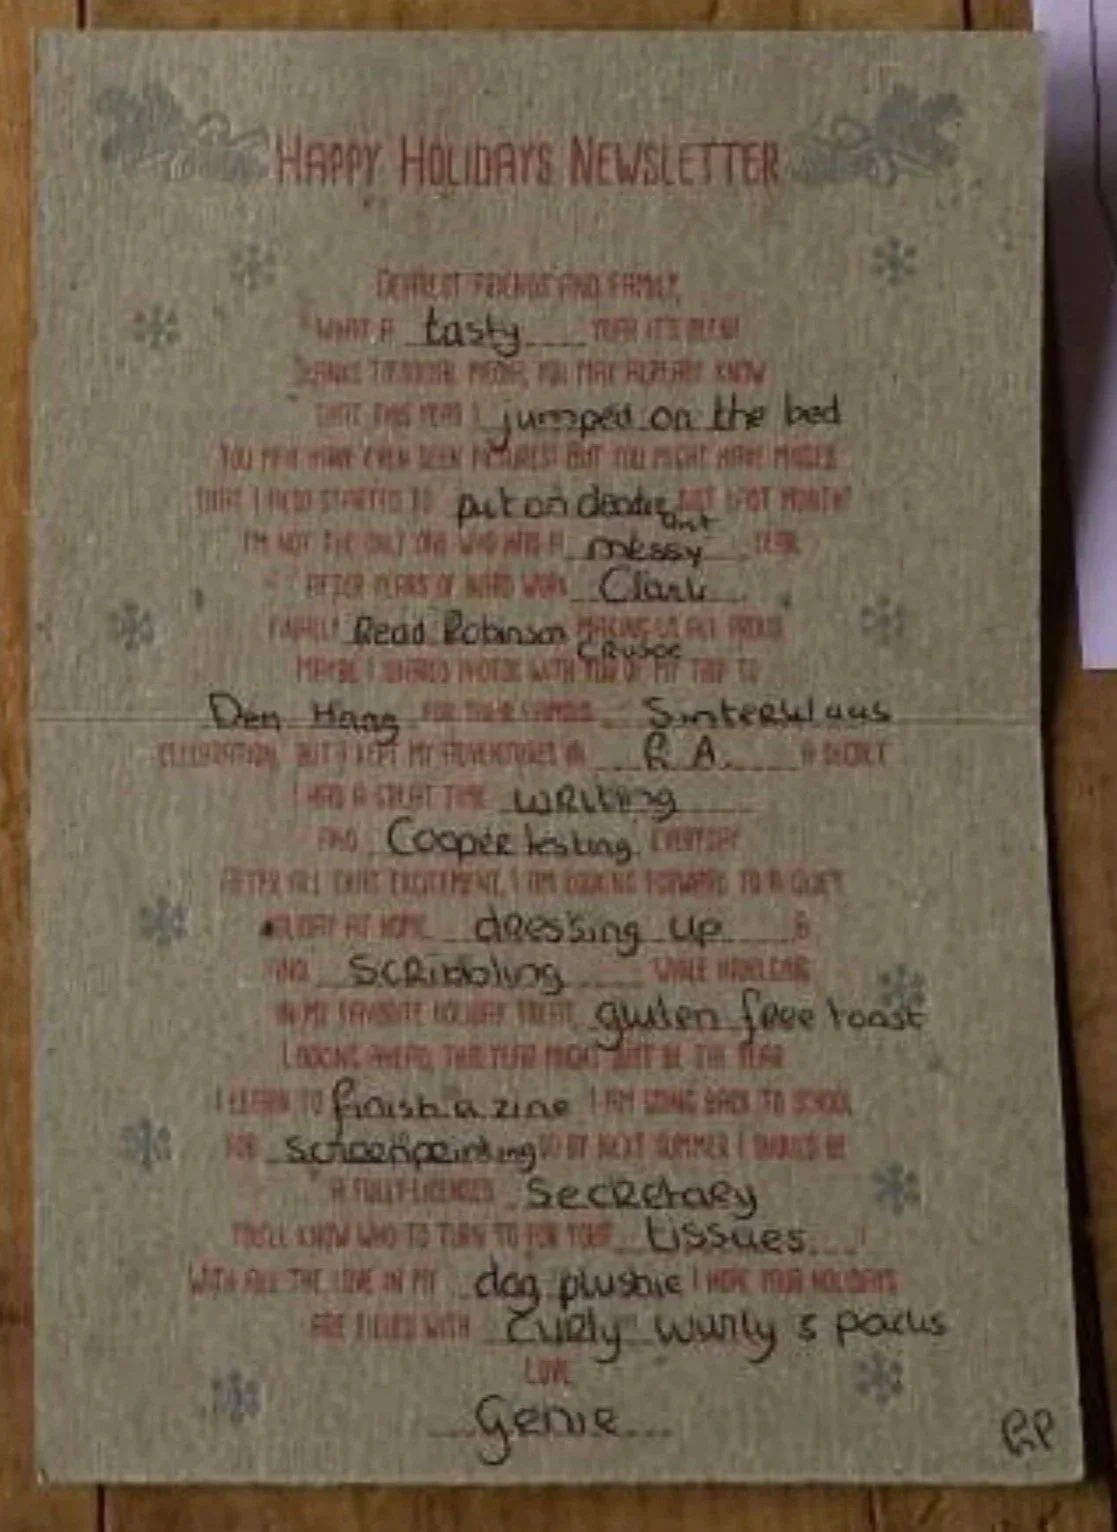 HAPPY HOLIDAYS NEWSLETTER
DEAREST FRIENDS AND FAMILY,
WHAT A tasty YEAR IT'S BEEN!
THANKS TO SOCIAL MEDIA, YOU MAY ALREADY KNOW
THAT THIS YEAR I jumped on the bed
YOU MAY HAVE EVEN SEEN PICTURES! BUT YOU MIGHT HAVE MISSED
THAT I ALSO STARTED TO put on deodorant JUST LAST MONTH!
I'M NOT THE ONLY ONE WHO HAD A messy YEAR.
AFTER YEARS OF HARD WORK Clark
FINALLY Read Robinson Crusoe MAKING US ALL PROUD
MAYBE I SHARED PHOTOS WITH YOU OF MY TRIP TO
Den Haag FOR THEIR FAMOUS Sinterklaas
CELEBRATION, BUT I KEPT MY ADVENTURES IN R.A. A SECRET
I HAD A GREAT TIME writing
AND Cooper testing EVERYDAY
AFTER ALL THAT EXCITEMENT, I AM LOOKING FORWARD TO A QUIET
HOLIDAY AT HOME dressing up &
AND Scribbling WHILE INDULGING
IN MY FAVORITE HOLIDAY TREAT, gluten free toast
LOOKING AHEAD, THIS YEAR MIGHT JUST BE THE YEAR
I LEARN TO finish a zine I AM GOING BACK TO SCHOOL
FOR screenprinting SO BY NEXT SUMMER I SHOULD BE
A FULLY-LICENSED Secretary
YOU'LL KNOW WHO TO TURN TO FOR YOUR tissues!
WITH ALL THE LOVE IN MY dog plushie I HOPE YOUR HOLIDAYS
ARE FILLED WITH curly wurly 5 packs
LOVE
Genie
RP